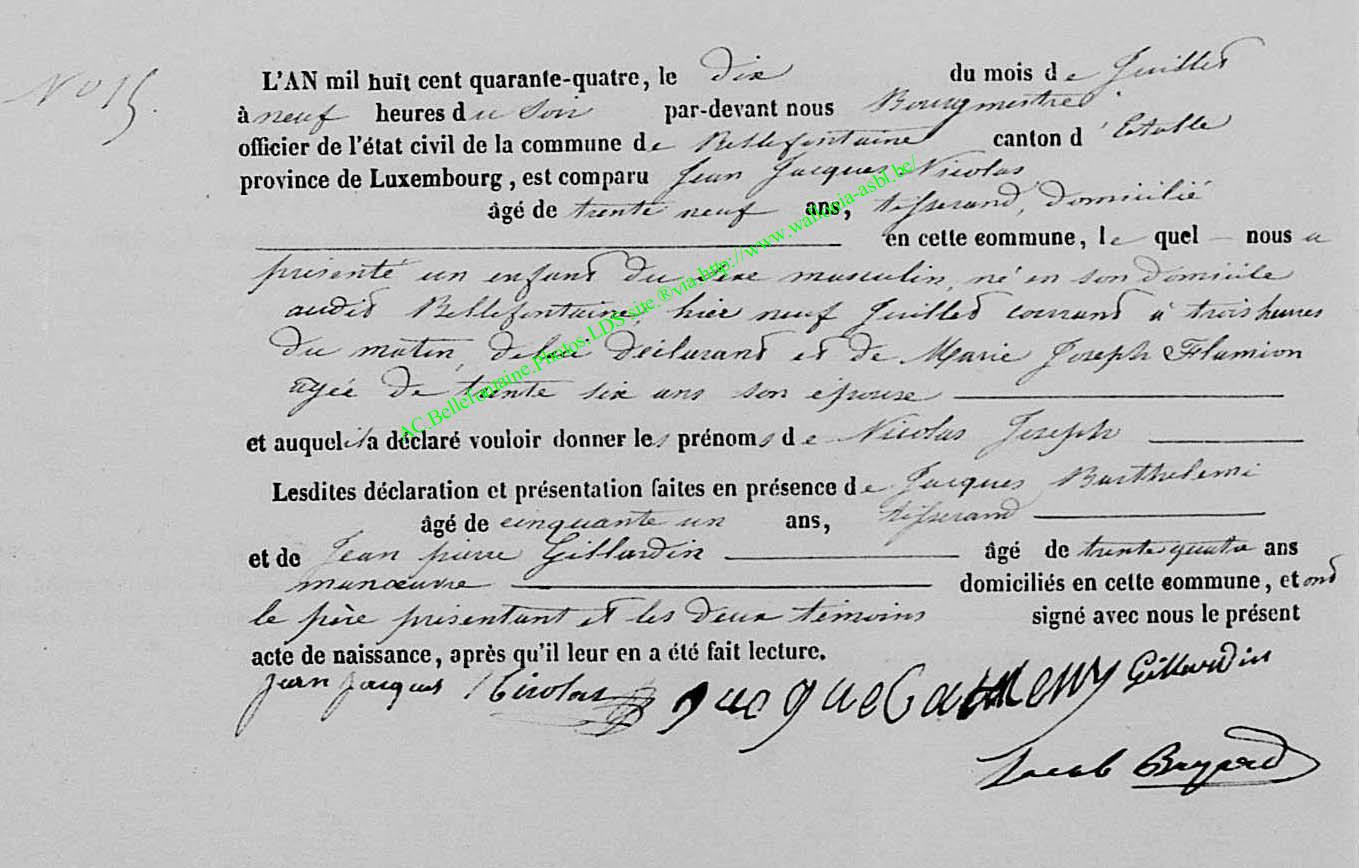 N° 15.
L'AN mil huit cent quarante-quatre, le dix du mois de Juillet
à neuf heures du Soir par-devant nous Bourgmestre
officier de l'état civil de la commune de Bellefontaine canton d'Etalle
province de Luxembourg, est comparu Jean Jacques Nicolas
âgé de trente neuf ans, tisserand, domicilié
en cette commune, lequel nous a
présenté un enfant du sexe masculin, né en son domicile
audit Bellefontaine, hier neuf Juillet courant à trois heures
du matin, de lui déclarant et de Marie Joseph Flamion
agée de trente six ans son épouse
et auquel il a déclaré vouloir donner les prénoms de Nicolas Joseph
Lesdites déclaration et présentation faites en présence de Jacques Barthelemi
âgé de cinquante un ans, tisserand
et de Jean pierre Gillardin âgé de trente quatre ans
manœuvre domiciliés en cette commune, et ont
le père présentant et les deux témoins signé avec nous le présent
acte de naissance, après qu'il leur en a été fait lecture.
Jean Jacques Nicolas Gillardin
Jacob Bayard
AC.Bellefontaine.Photos.LDS.site ® via http://www.wallonia-asbl.be/